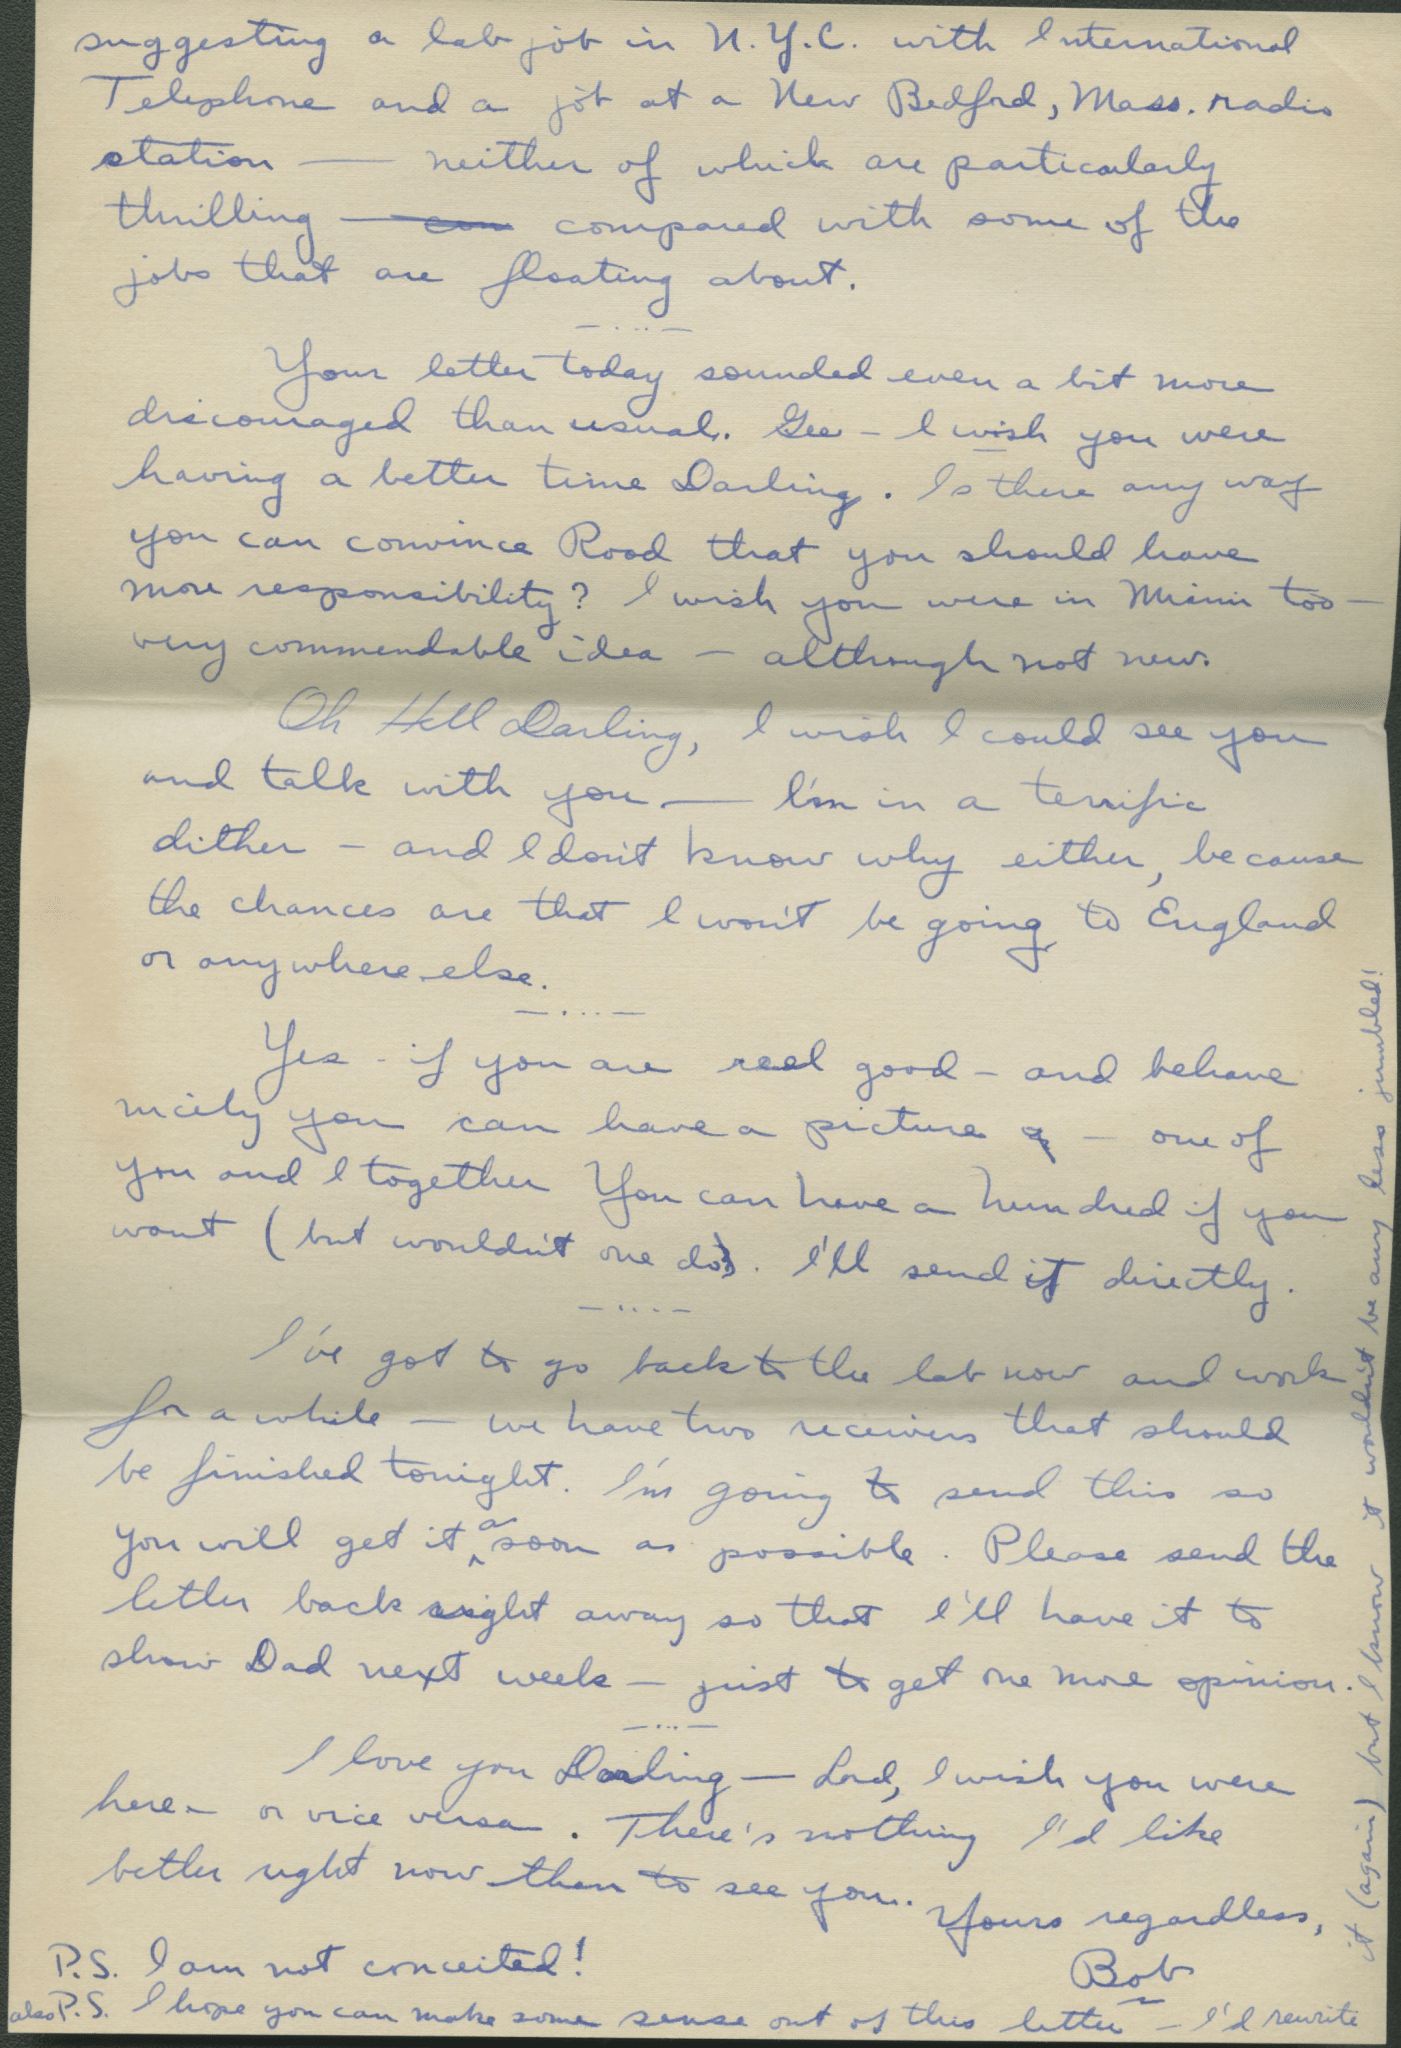 suggesting a lab job in N.Y.C. with International
Telephone and a job at a New Bedford, Mass. radio
station — neither of which are particularly
thrilling — con compared with some of the
jobs that are floating about.
Your letter today sounded even a bit more
discouraged than usual. Gee - I wish you were
having a better time Darling. Is there any way
you can convince Rood that you should have
more responsibility? I wish you were in Miami too —
very commendable idea — although not new.
Oh Hell Darling, I wish I could see you
and talk with you — I'm in a terrific
dither — and I don't know why either, because
the chances are that I won't be going to England
or anywhere else.
Yes - if you are real good — and behave
nicely you can have a picture — one of
you and I together You can have a hundred if you
want (but wouldn't one do?). I'll send it directly.
I've got to go back to the lab now and work
for a while — we have two receivers that should
be finished tonight. I'm going to send this so
you will get it as soon as possible. Please send the
letter back right away so that I'll have it to
show Dad next week — just to get one more opinion.
I love you Darling — Lord, I wish you were
here — or vice versa. There's nothing I'd like
better right now than to see you.
Yours regardless,
Bob
P.S. I am not conceited!
also P.S. I hope you can make some sense out of this letter — I'd rewrite
it (again) but I know it wouldn't be any less jumbled!